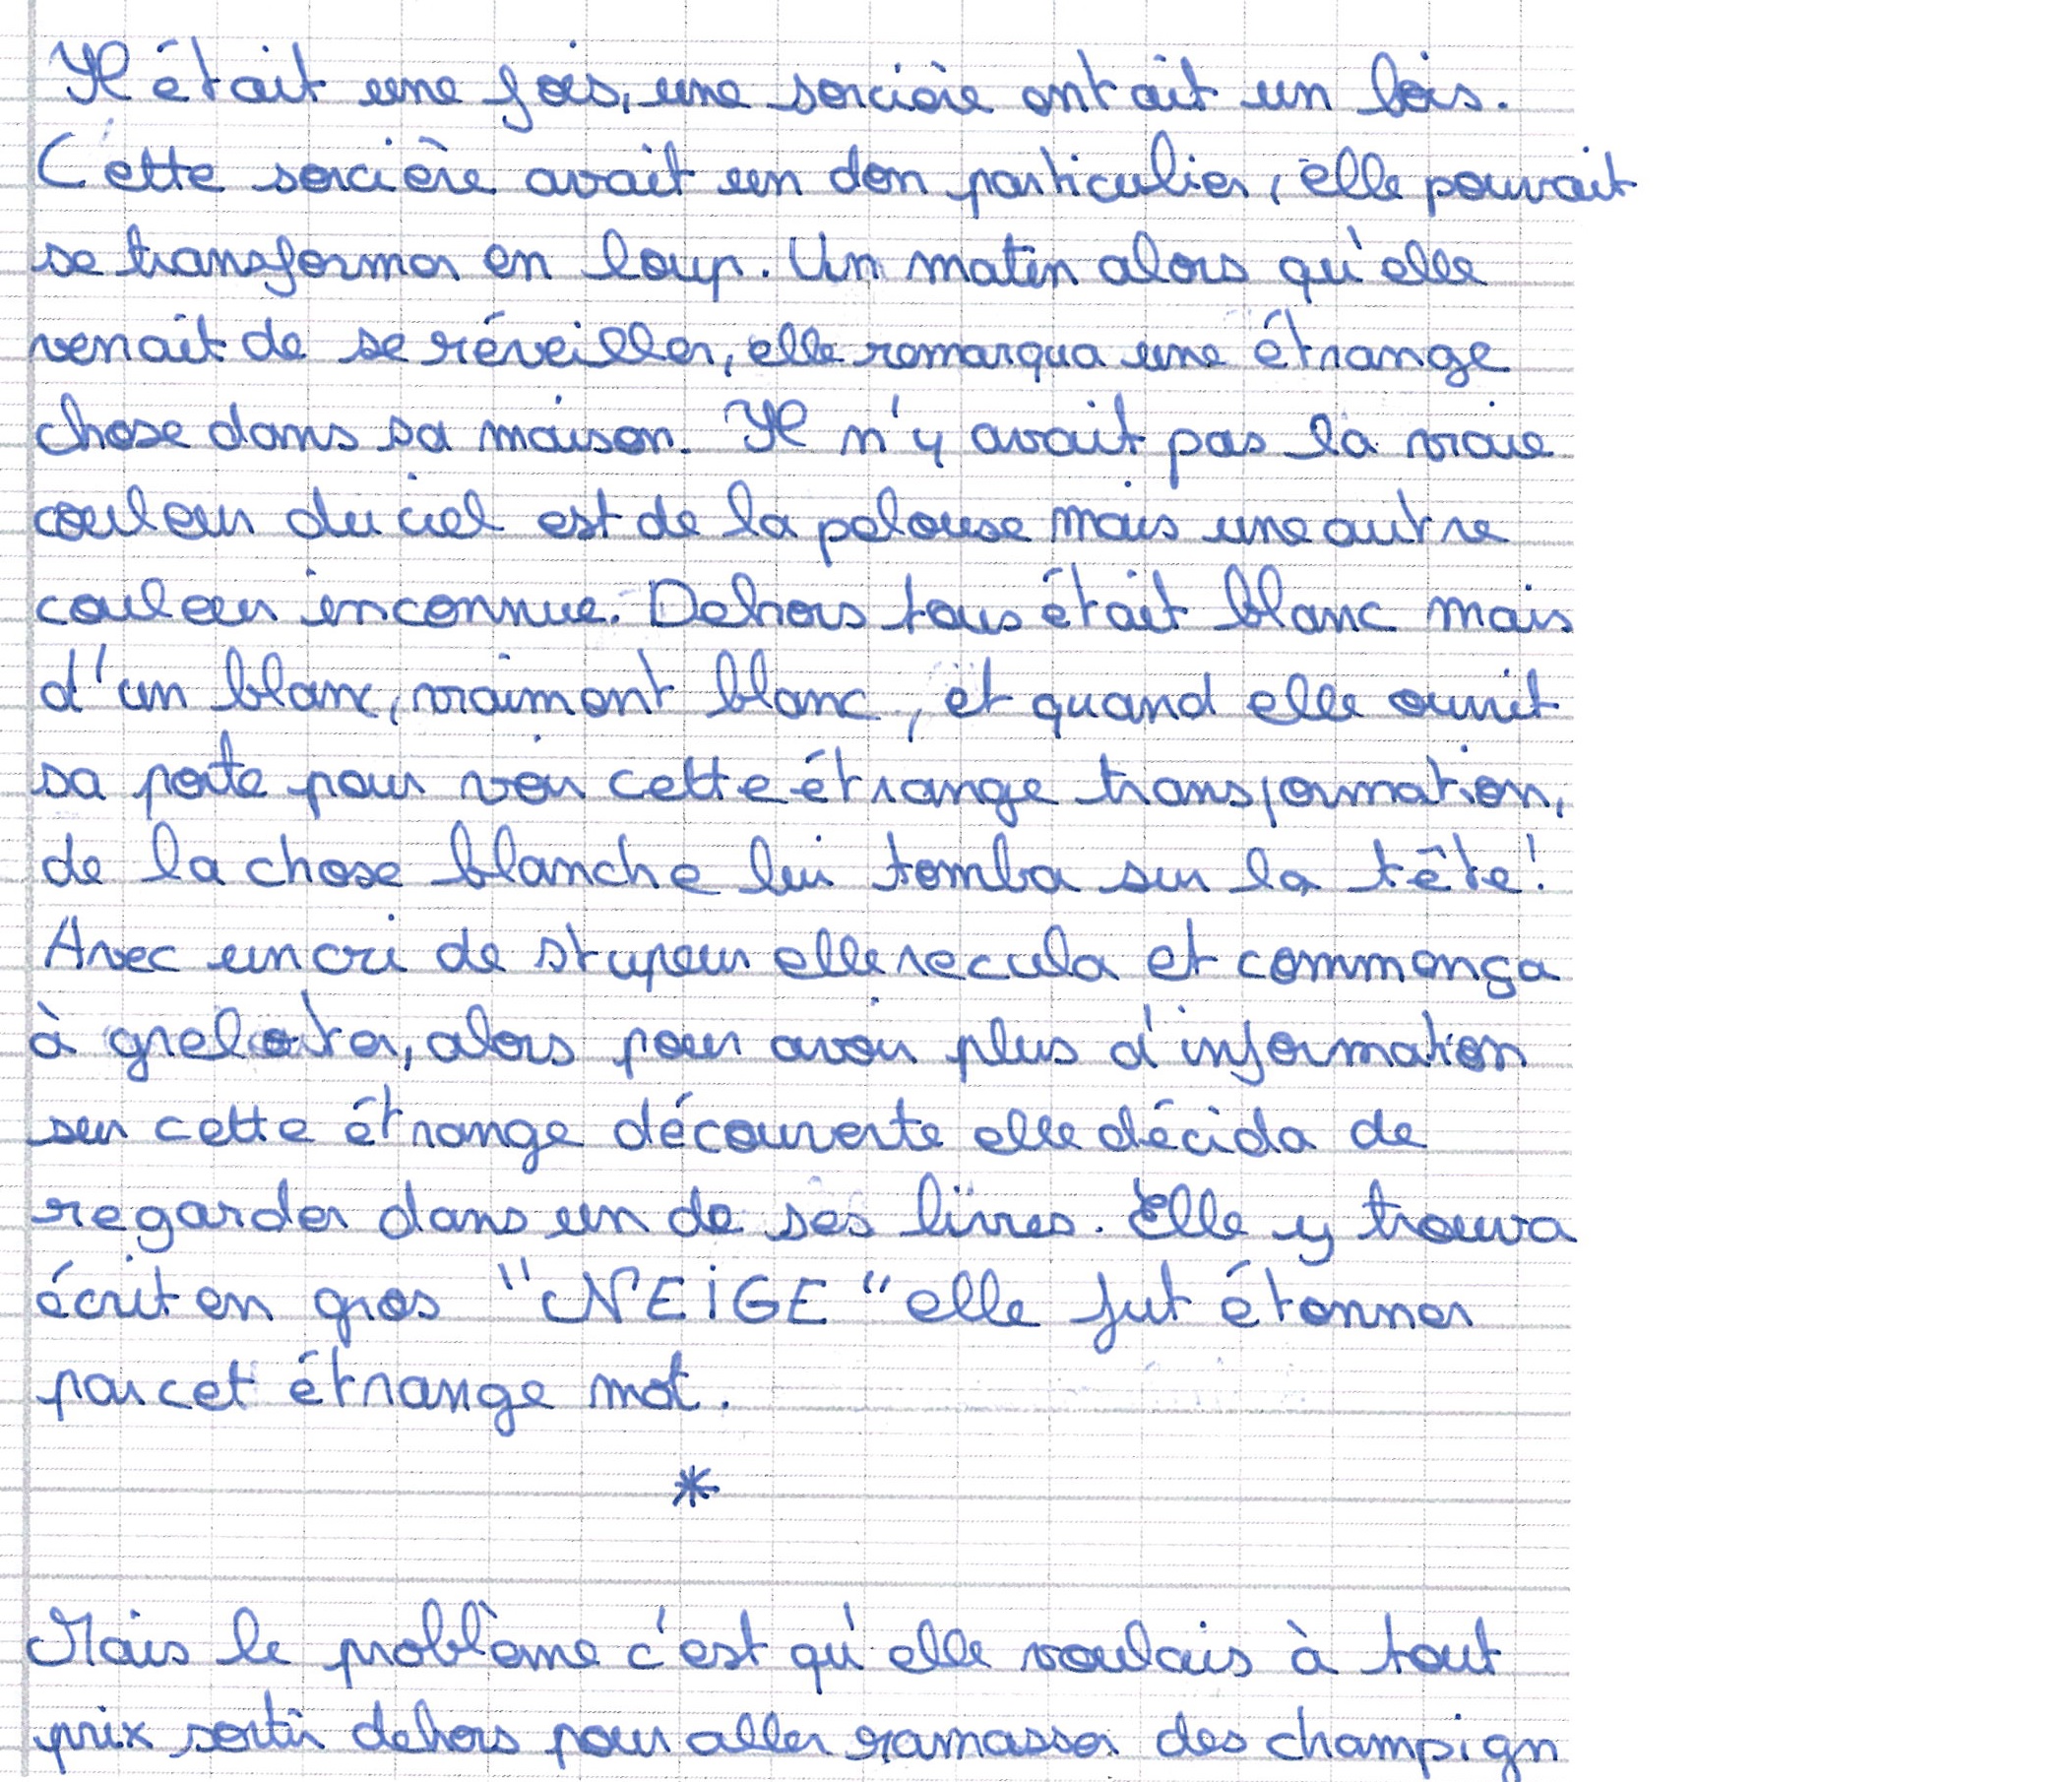 Il était une fois, une sorcière ont ait un bois.
Cette sorcière avait un don particulier, elle pouvait
se transformer en loup. Un matin alors qu'elle
venait de se réveiller, elle remarqua une étrange
chose dans sa maison. Il n'y avait pas la vraie
couleur du ciel est de la pelouse mais une autre
couleur inconnue. Dehors tous était blanc mais
d'un blanc, vraiment blanc, et quand elle ouvrit
sa porte pour voir cette étrange transformation,
de la chose blanche lui tomba sur la tête!
Avec un cri de stupeur elle recula et commença
à greloter, alors pour avoir plus d'information
sur cette étrange découverte elle décida de
regarder dans un de ses livres. Elle y trouva
écrit en gros "NEiGE" elle fut étonner
par cet étrange mot.
*
Mais le problème c'est qu'elle voulais à tout
prix sortir dehors pour aller ramasser des champign